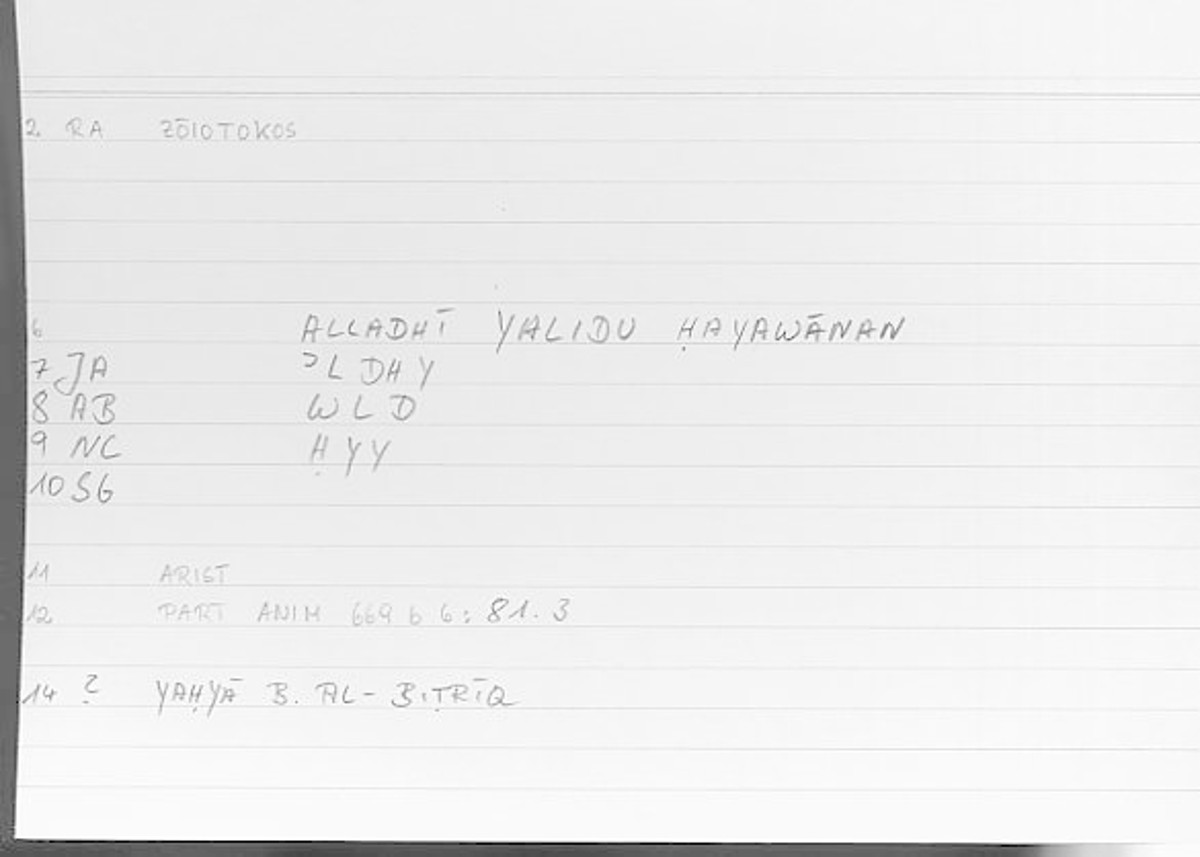 2 RA ZŌIOTOKOS
6 ALLADHĪ YALIDU ḤAYAWĀNAN
7 JA ʾL DHY
8 AB WLD
9 NC ḤYY
10 SG
11 ARIST
12 PART ANIM 669 b 6: 81.3
14 ? YAḤYĀ B. AL-BIṬRĪQ